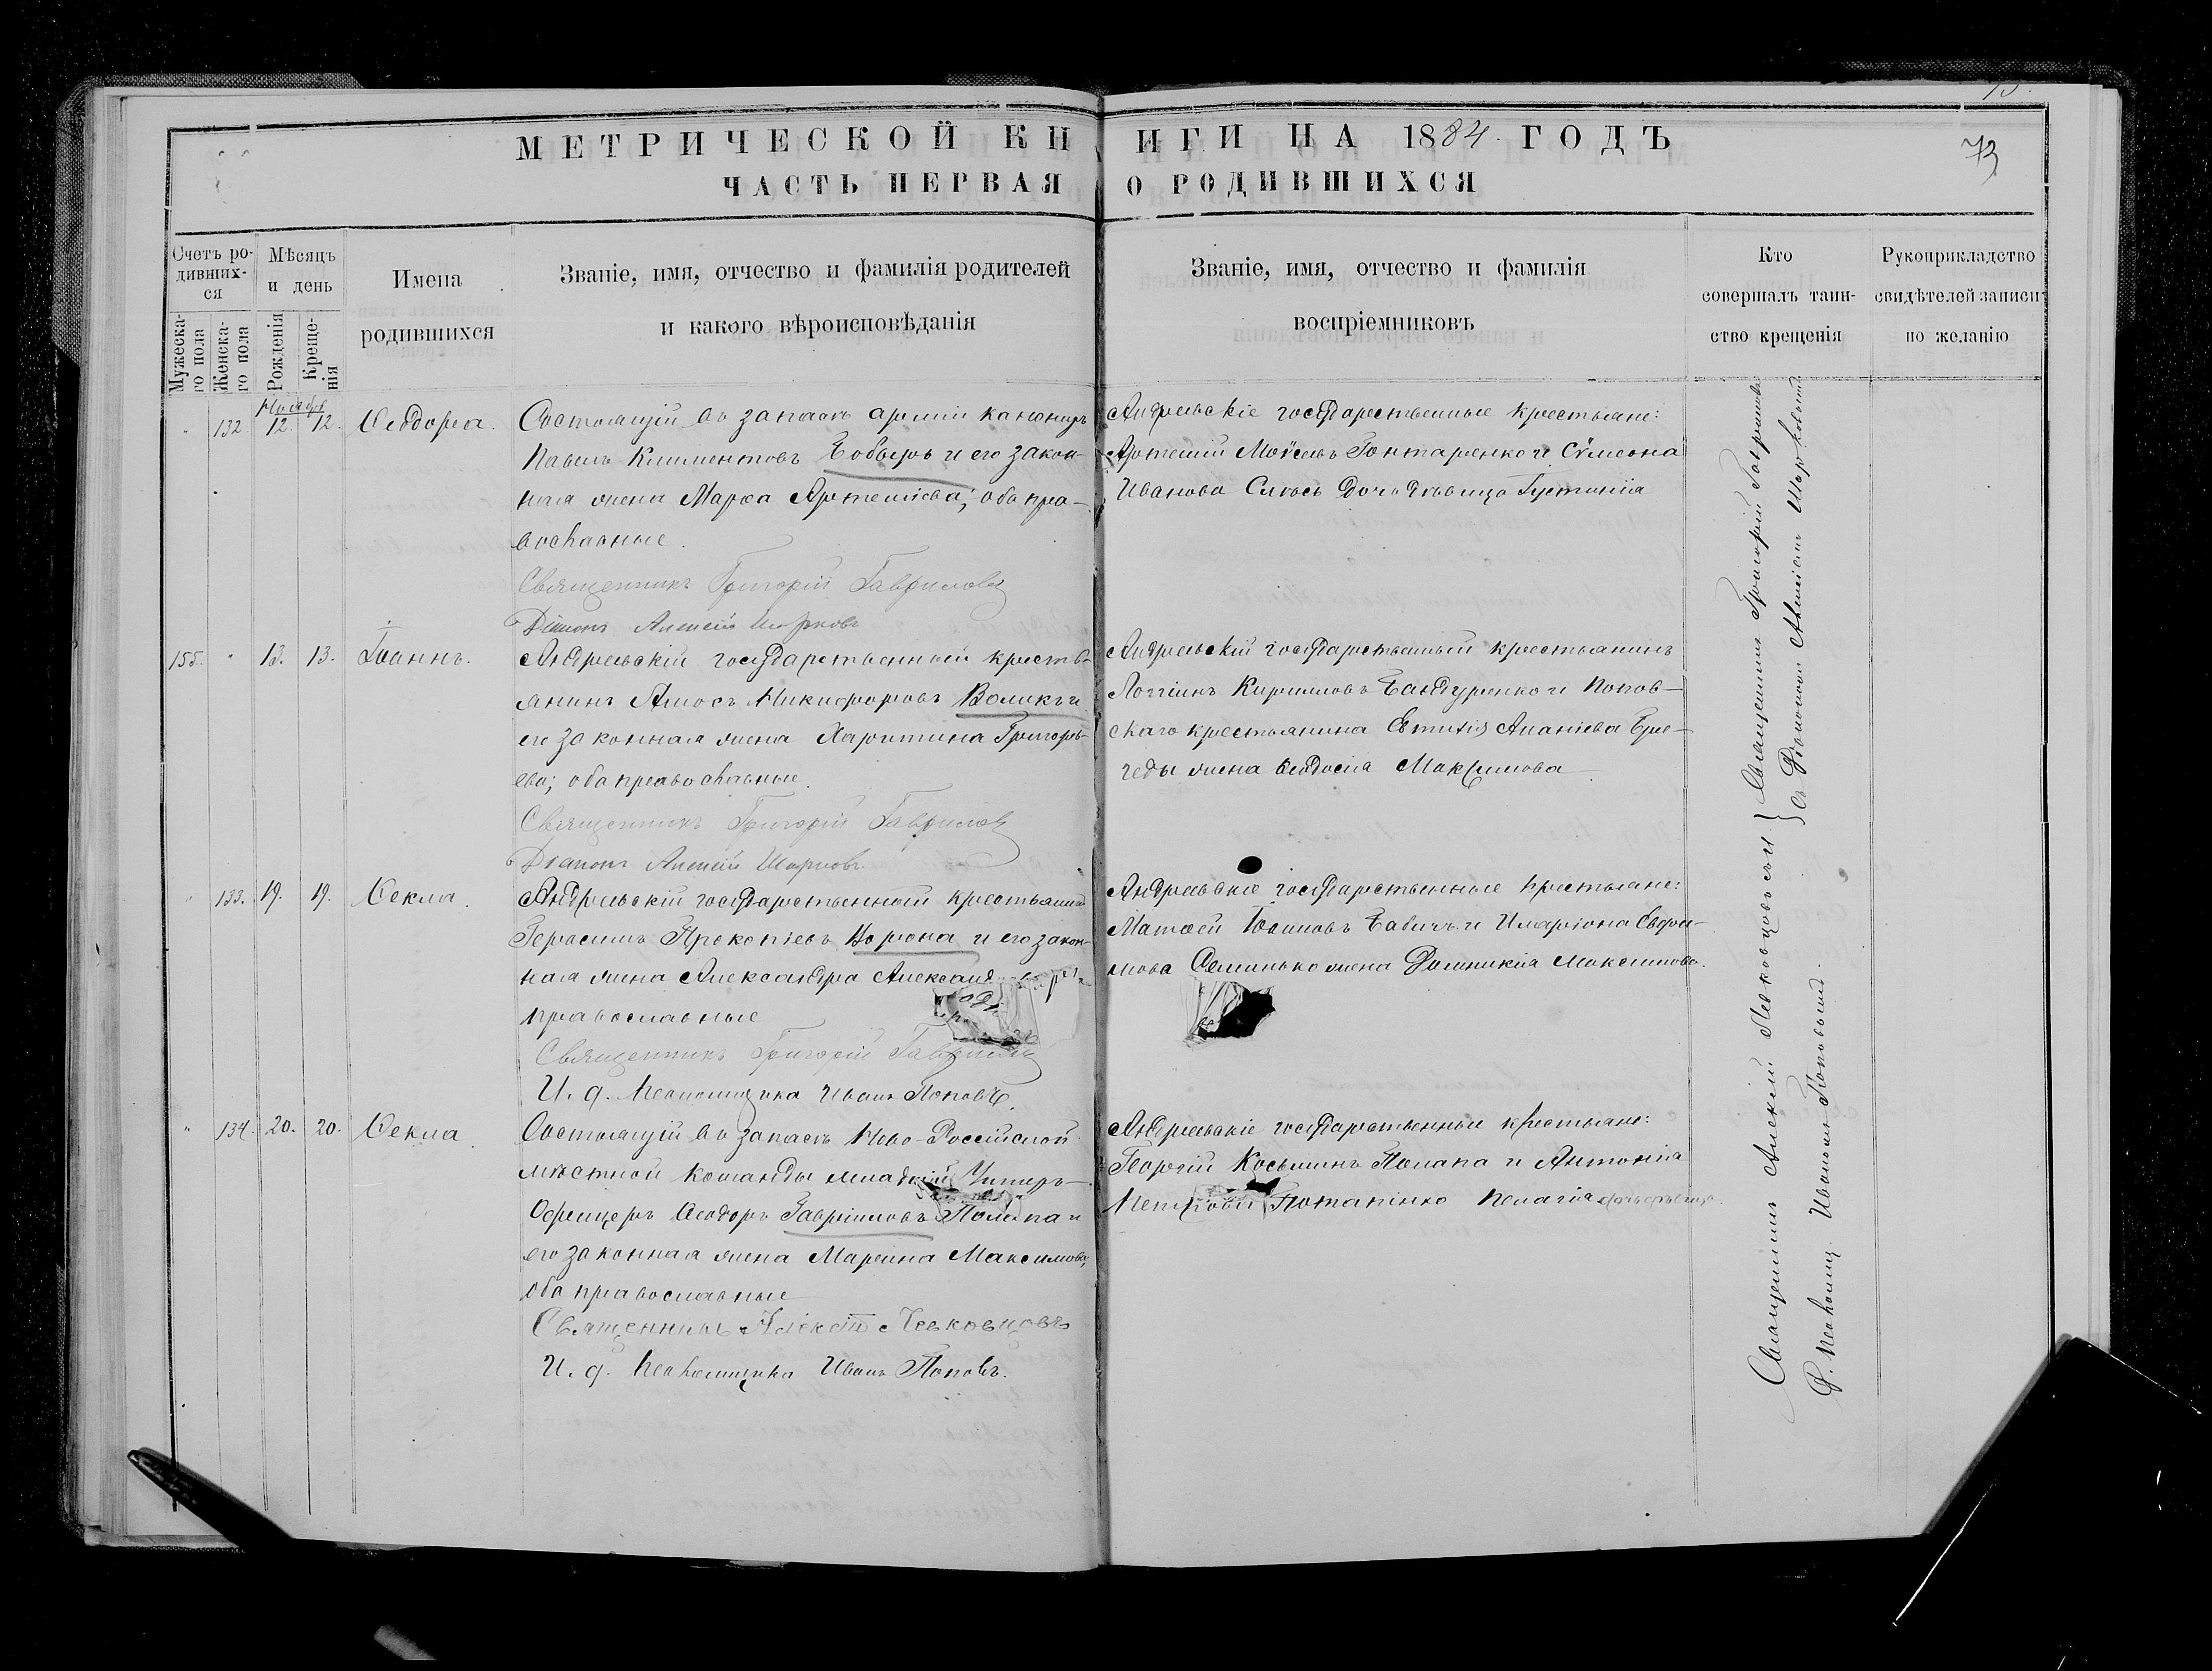 МЕТРИЧЕСКОЙ КН
ИГИ НА 1884. ГОДЪ
73
ЧАСТЬ ПЕРВАЯ
О РОДИВШИХСЯ
Счетъ ро-
дивших-
ся
Мужеска-
го пола
Женска-
го пола
Мѣсяцъ
и день
Рожденія
Креще-
нія
Имена
родившихся
Званіе, имя, отчество и фамилія родителей
и какого вѣроисповѣданія
Званіе, имя, отчество и фамилія
воспріемниковъ
Кто
совершалъ таин-
ство крещенія
Рукоприкладство
свидѣтелей записи
по желанію
Ноябрь
132. 12. 12. Ѳеодора.
Состоящій въ запасѣ арміи канониръ
Павелъ Климентовъ Бобыръ и его закон-
ная жена Марѳа Артеміева; оба пра-
вославные.
Священникъ Григорій Гавриловъ
Діаконъ Алексій Шарковъ
Андреевскіе государственные крестьяне:
Артемій Моѵсеевъ Гонтаренко и Сѵмеона
Иванова дочь дѣвица Іустинія
155. 13. 13. Іоаннъ.
Андреевскій государственный кресть-
янинъ Амосъ Никифоровъ Воликъ и
его законная жена Харитина Григорь-
ева; оба православные.
Священникъ Григорій Гавриловъ
Діаконъ Алексій Шарковъ.
Андреевскій государственный крестьянинъ
Логгинъ Кирилловъ Бандуренко и Попов-
скаго крестьянина Ананіева Бре-
геды жена Ѳеодосія Максимова
133. 19. 19. Ѳекла.
Андреевскій государственный крестьянинъ
Герасимъ Прокопіевъ Ворона и его закон-
ная жена Александра
православные
Священникъ Григорій Гавриловъ
И. д. Псаломщика Иванъ Поповъ.
Андреевскіе государственные крестьяне:
Матѳей Іоанновъ Бабичъ и Иларіона Евфи-
мова Семинько жена Домникія Максимова.
134. 20. 20. Ѳекла.
Состоящій въ запасѣ Ново-Россійской
мѣстной команды младшій Унтеръ-
Офицеръ Ѳеодоръ Гавріиловъ Полапа и
его законная жена Марина Максимова,
оба православные
Священникъ Алексій Левковцовъ
И. д. Псаломщика Иванъ Поповъ.
Андреевскіе государственные крестьяне:
Георгій Косьминъ Полапа и Антонія
Потапенко Пелагія
Священникъ Алексій Левковцовъ и } Священникъ Григорій Гавриловъ
Псаломщ. Иваномъ Поповымъ. } съ Діакономъ Алексіемъ Шарковымъ